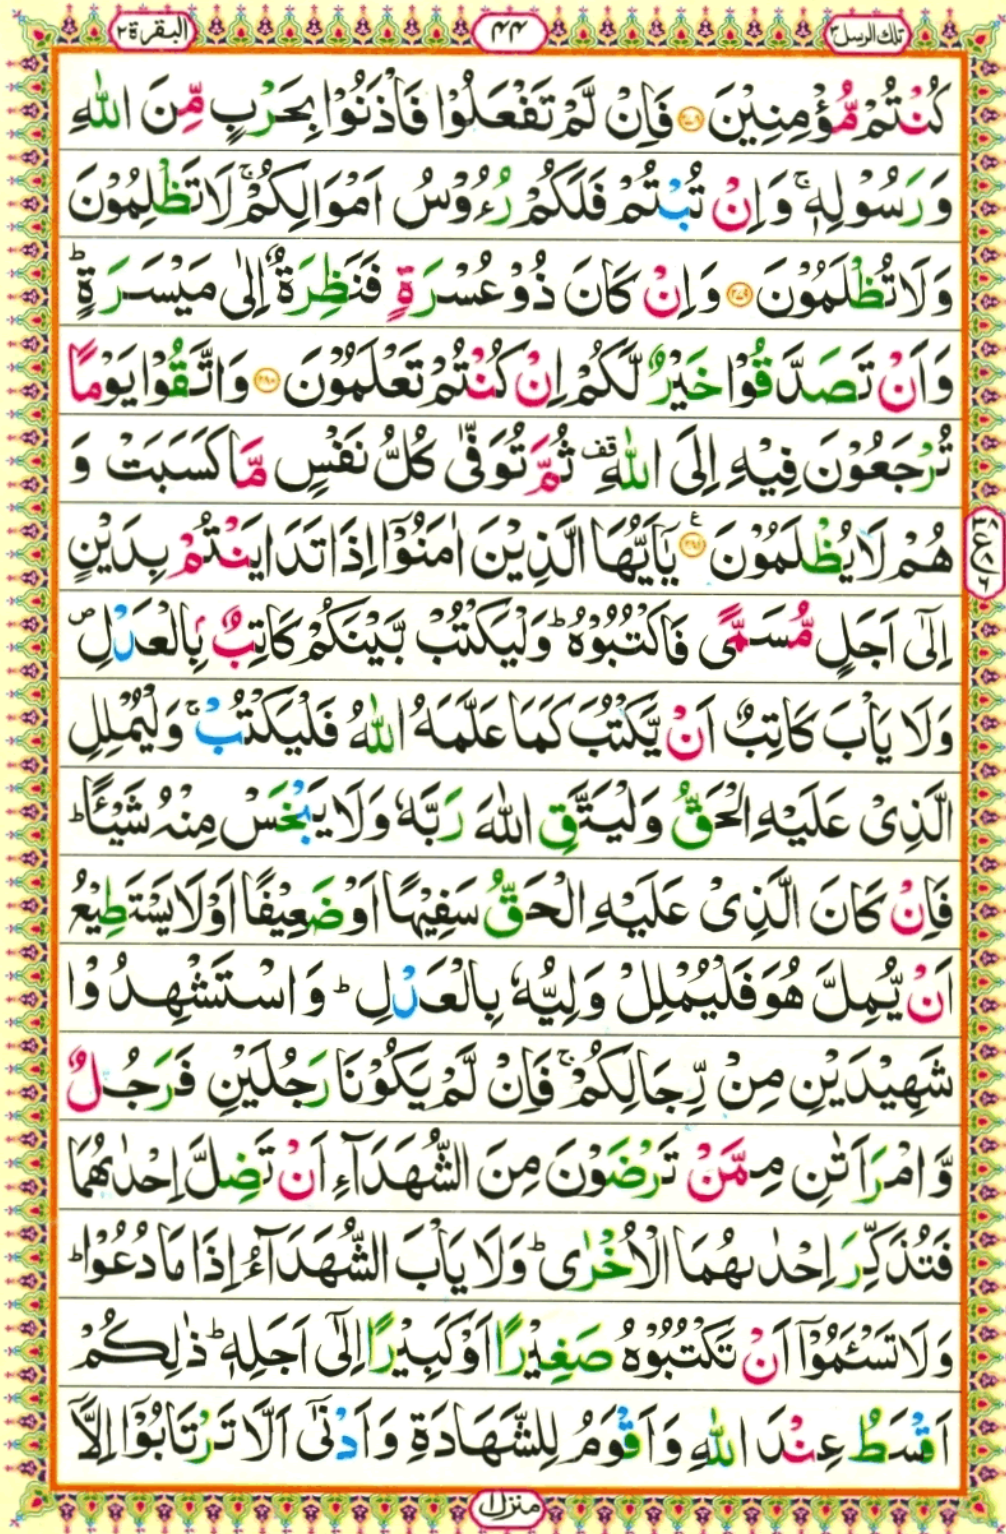 تلك الرسل ٣
٤٤
البقرة ٢
كُنْتُمْ مُّؤْمِنِيْنَ ۝ فَاِنْ لَّمْ تَفْعَلُوْا فَاْذَنُوْا بِحَرْبٍ مِّنَ اللّٰهِ
وَ رَسُوْلِهٖ ۚ وَ اِنْ تُبْتُمْ فَلَكُمْ رُءُوْسُ اَمْوَالِكُمْ ۚ لَا تَظْلِمُوْنَ
وَلَا تُظْلَمُوْنَ ۝ وَ اِنْ كَانَ ذُوْ عُسْرَةٍ فَنَظِرَةٌ اِلٰى مَيْسَرَةٍ ؕ
وَ اَنْ تَصَدَّقُوْا خَيْرٌ لَّكُمْ اِنْ كُنْتُمْ تَعْلَمُوْنَ ۝ وَ اتَّقُوْا يَوْمًا
تُرْجَعُوْنَ فِيْهِ اِلَى اللّٰهِ قف ثُمَّ تُوَفّٰى كُلُّ نَفْسٍ مَّا كَسَبَتْ وَ
هُمْ لَا يُظْلَمُوْنَ ۝ يٰۤاَيُّهَا الَّذِيْنَ اٰمَنُوْۤا اِذَا تَدَايَنْتُمْ بِدَيْنٍ
اِلٰۤى اَجَلٍ مُّسَمًّى فَاكْتُبُوْهُ ؕ وَلْيَكْتُبْ بَّيْنَكُمْ كَاتِبٌۢ بِالْعَدْلِ ۪
وَلَا يَاْبَ كَاتِبٌ اَنْ يَّكْتُبَ كَمَا عَلَّمَهُ اللّٰهُ فَلْيَكْتُبْ ۚ وَلْيُمْلِلِ
الَّذِىْ عَلَيْهِ الْحَقُّ وَلْيَتَّقِ اللّٰهَ رَبَّهٗ وَلَا يَبْخَسْ مِنْهُ شَيْـًٔا ؕ
فَاِنْ كَانَ الَّذِىْ عَلَيْهِ الْحَقُّ سَفِيْهًا اَوْ ضَعِيْفًا اَوْ لَا يَسْتَطِيْعُ
اَنْ يُّمِلَّ هُوَ فَلْيُمْلِلْ وَلِيُّهٗ بِالْعَدْلِ ؕ وَ اسْتَشْهِدُوْا
شَهِيْدَيْنِ مِنْ رِّجَالِكُمْ ۚ فَاِنْ لَّمْ يَكُوْنَا رَجُلَيْنِ فَرَجُلٌ
وَّ امْرَاَتٰنِ مِمَّنْ تَرْضَوْنَ مِنَ الشُّهَدَآءِ اَنْ تَضِلَّ اِحْدٰىهُمَا
فَتُذَكِّرَ اِحْدٰىهُمَا الْاُخْرٰى ؕ وَلَا يَاْبَ الشُّهَدَآءُ اِذَا مَا دُعُوْا ؕ
وَلَا تَسْـَٔمُوْۤا اَنْ تَكْتُبُوْهُ صَغِيْرًا اَوْ كَبِيْرًا اِلٰۤى اَجَلِهٖ ؕ ذٰلِكُمْ
اَقْسَطُ عِنْدَ اللّٰهِ وَ اَقْوَمُ لِلشَّهَادَةِ وَ اَدْنٰۤى اَلَّا تَرْتَابُوْۤا اِلَّاۤ
منزل ١